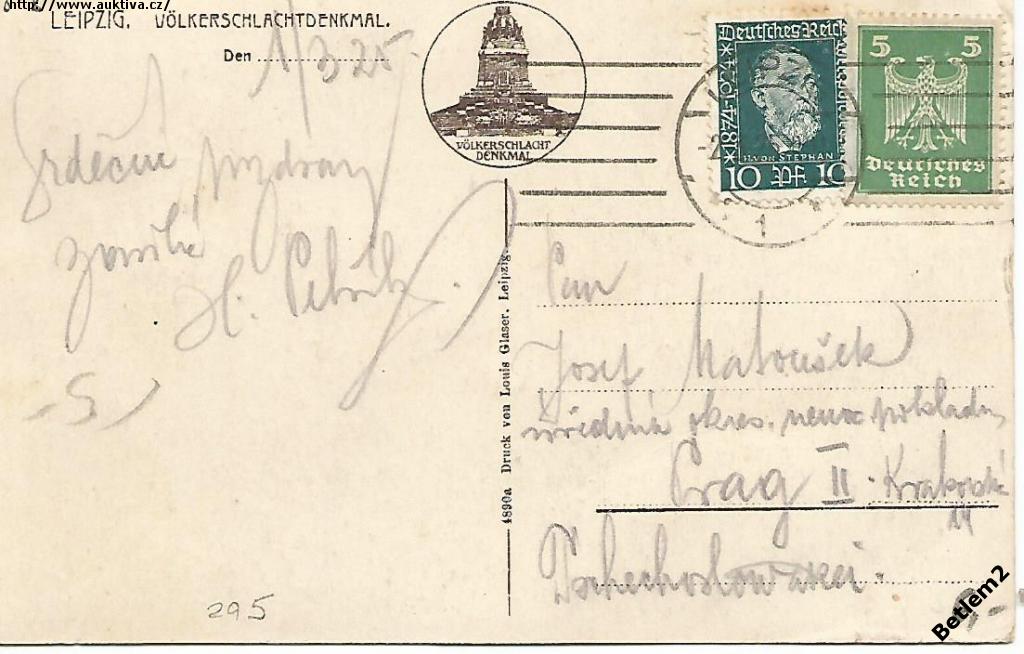 http://www.auktiva.cz/
LEIPZIG. VÖLKERSCHLACHTDENKMAL.
Den 1/3 25.
Srdečné pozdravy
zasílá
H.
VÖLKERSCHLACHT
DENKMAL
Deutsches Reich
*1874-1924*
H. VON STEPHAN
10 Pf. 10
5 5
Deutsches
Reich
1
4890a Druck von Louis Glaser, Leipzig.
Pan
Josef Matoušek
okres. nemoc pokladny
Prag II. Krakovská
Tschechoslowakei.
295
Betlem2